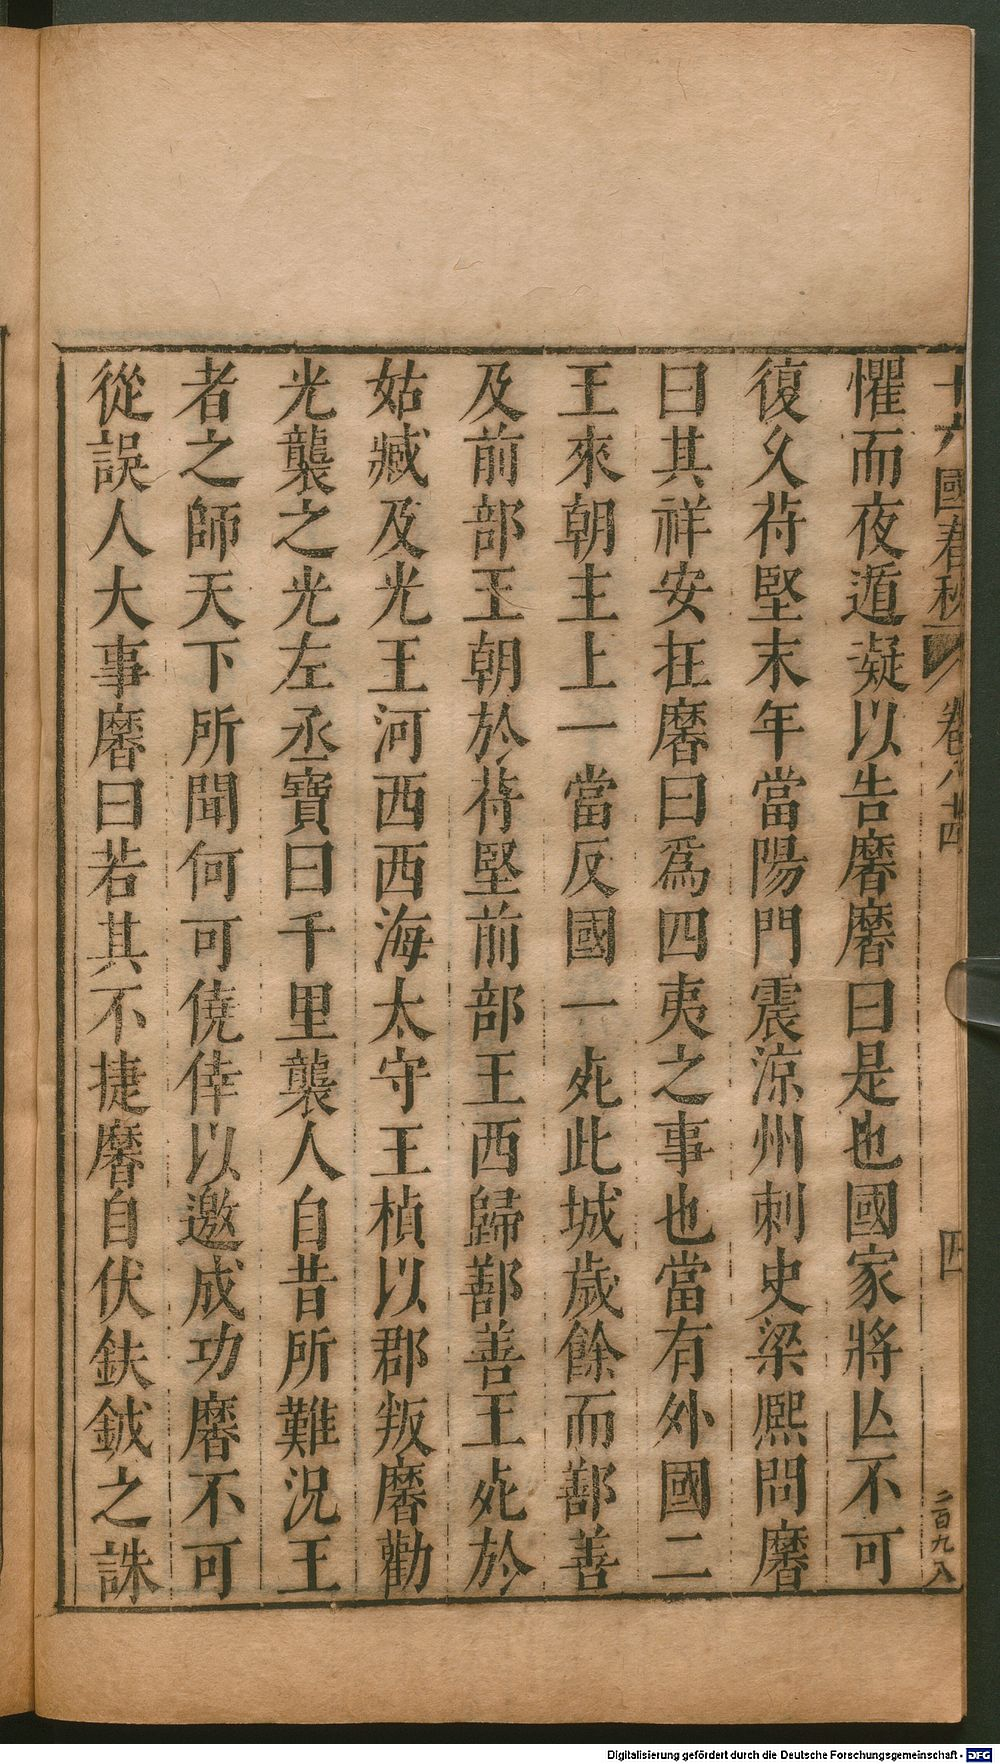 十六國春秋 卷八十四 四 二百九八
懼而夜遁凝以告磨磨曰是也國家將亾不可
復久苻堅末年當陽門震涼州刺史梁熙問磨
曰其祥安在磨曰爲四夷之事也當有外國二
王來朝主上一當反國一死此城歲餘而鄯善
及前部王朝於苻堅前部王西歸鄯善王死於
姑臧及光王河西西海太守王楨以郡叛磨勸
光襲之光左丞寶曰千里襲人自昔所難況王
者之師天下所聞何可僥倖以邀成功磨不可
從誤人大事磨曰若其不捷磨自伏鈇鉞之誅
Digitalisierung gefördert durch die Deutsche Forschungsgemeinschaft - DFG